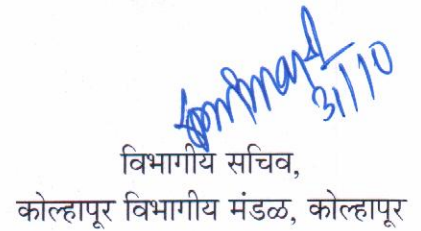 31/10
विभागीय सचिव,
कोल्हापूर विभागीय मंडळ, कोल्हापूर